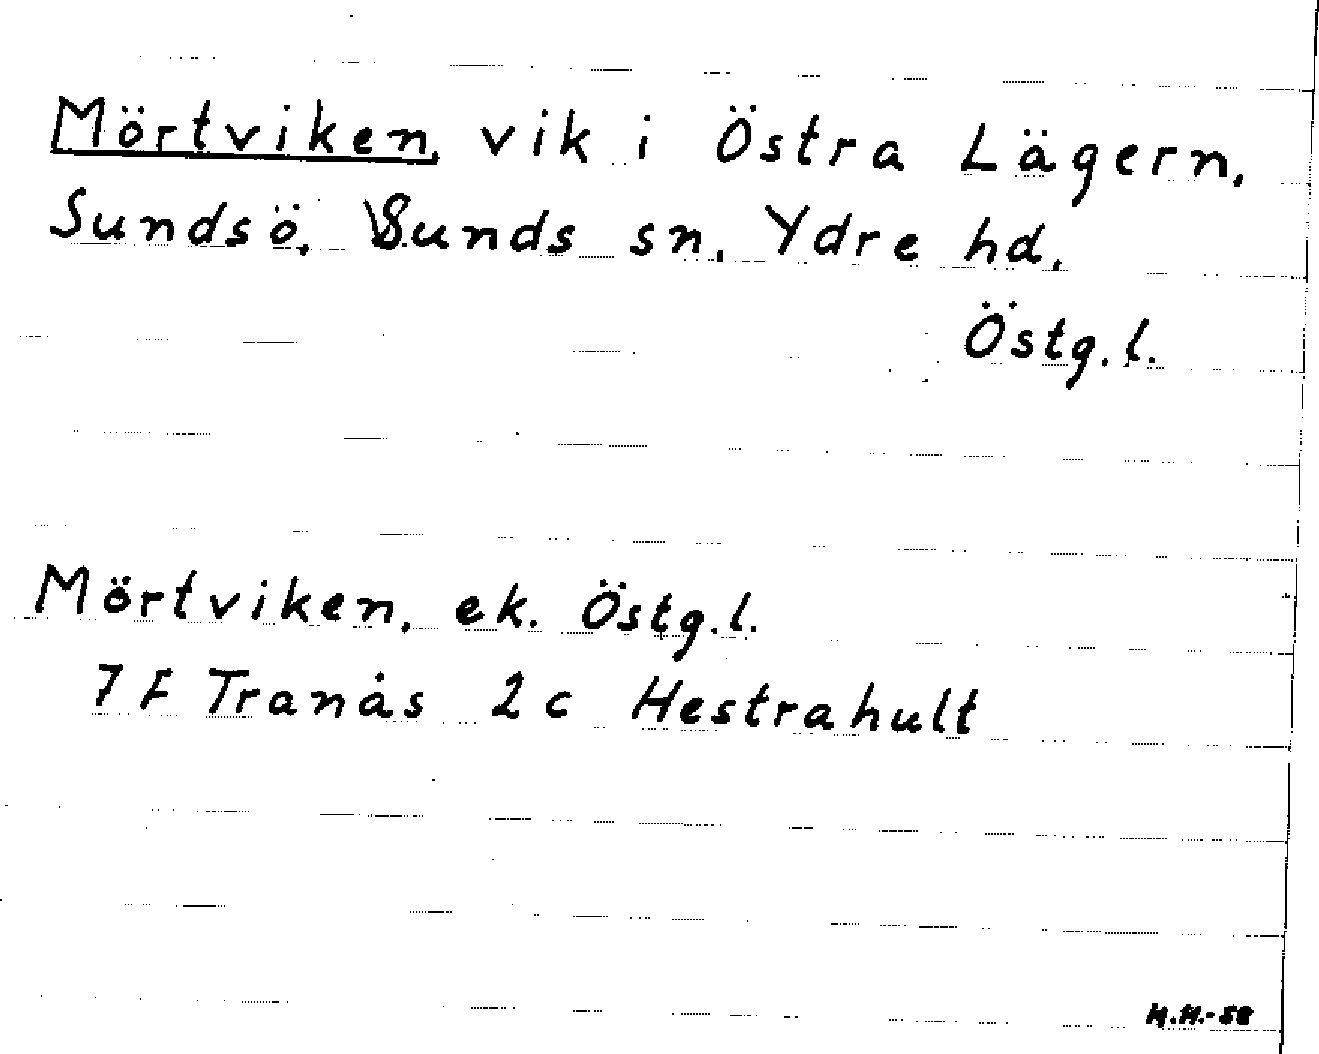 Mörtviken, vik i Östra Lägern,
Sundsö, Sunds sn, Ydre hd,
Östg.l.
Mörtviken, ek. Östg.l.
7 F Tranås 2 c Hestrahult
H.H.-58